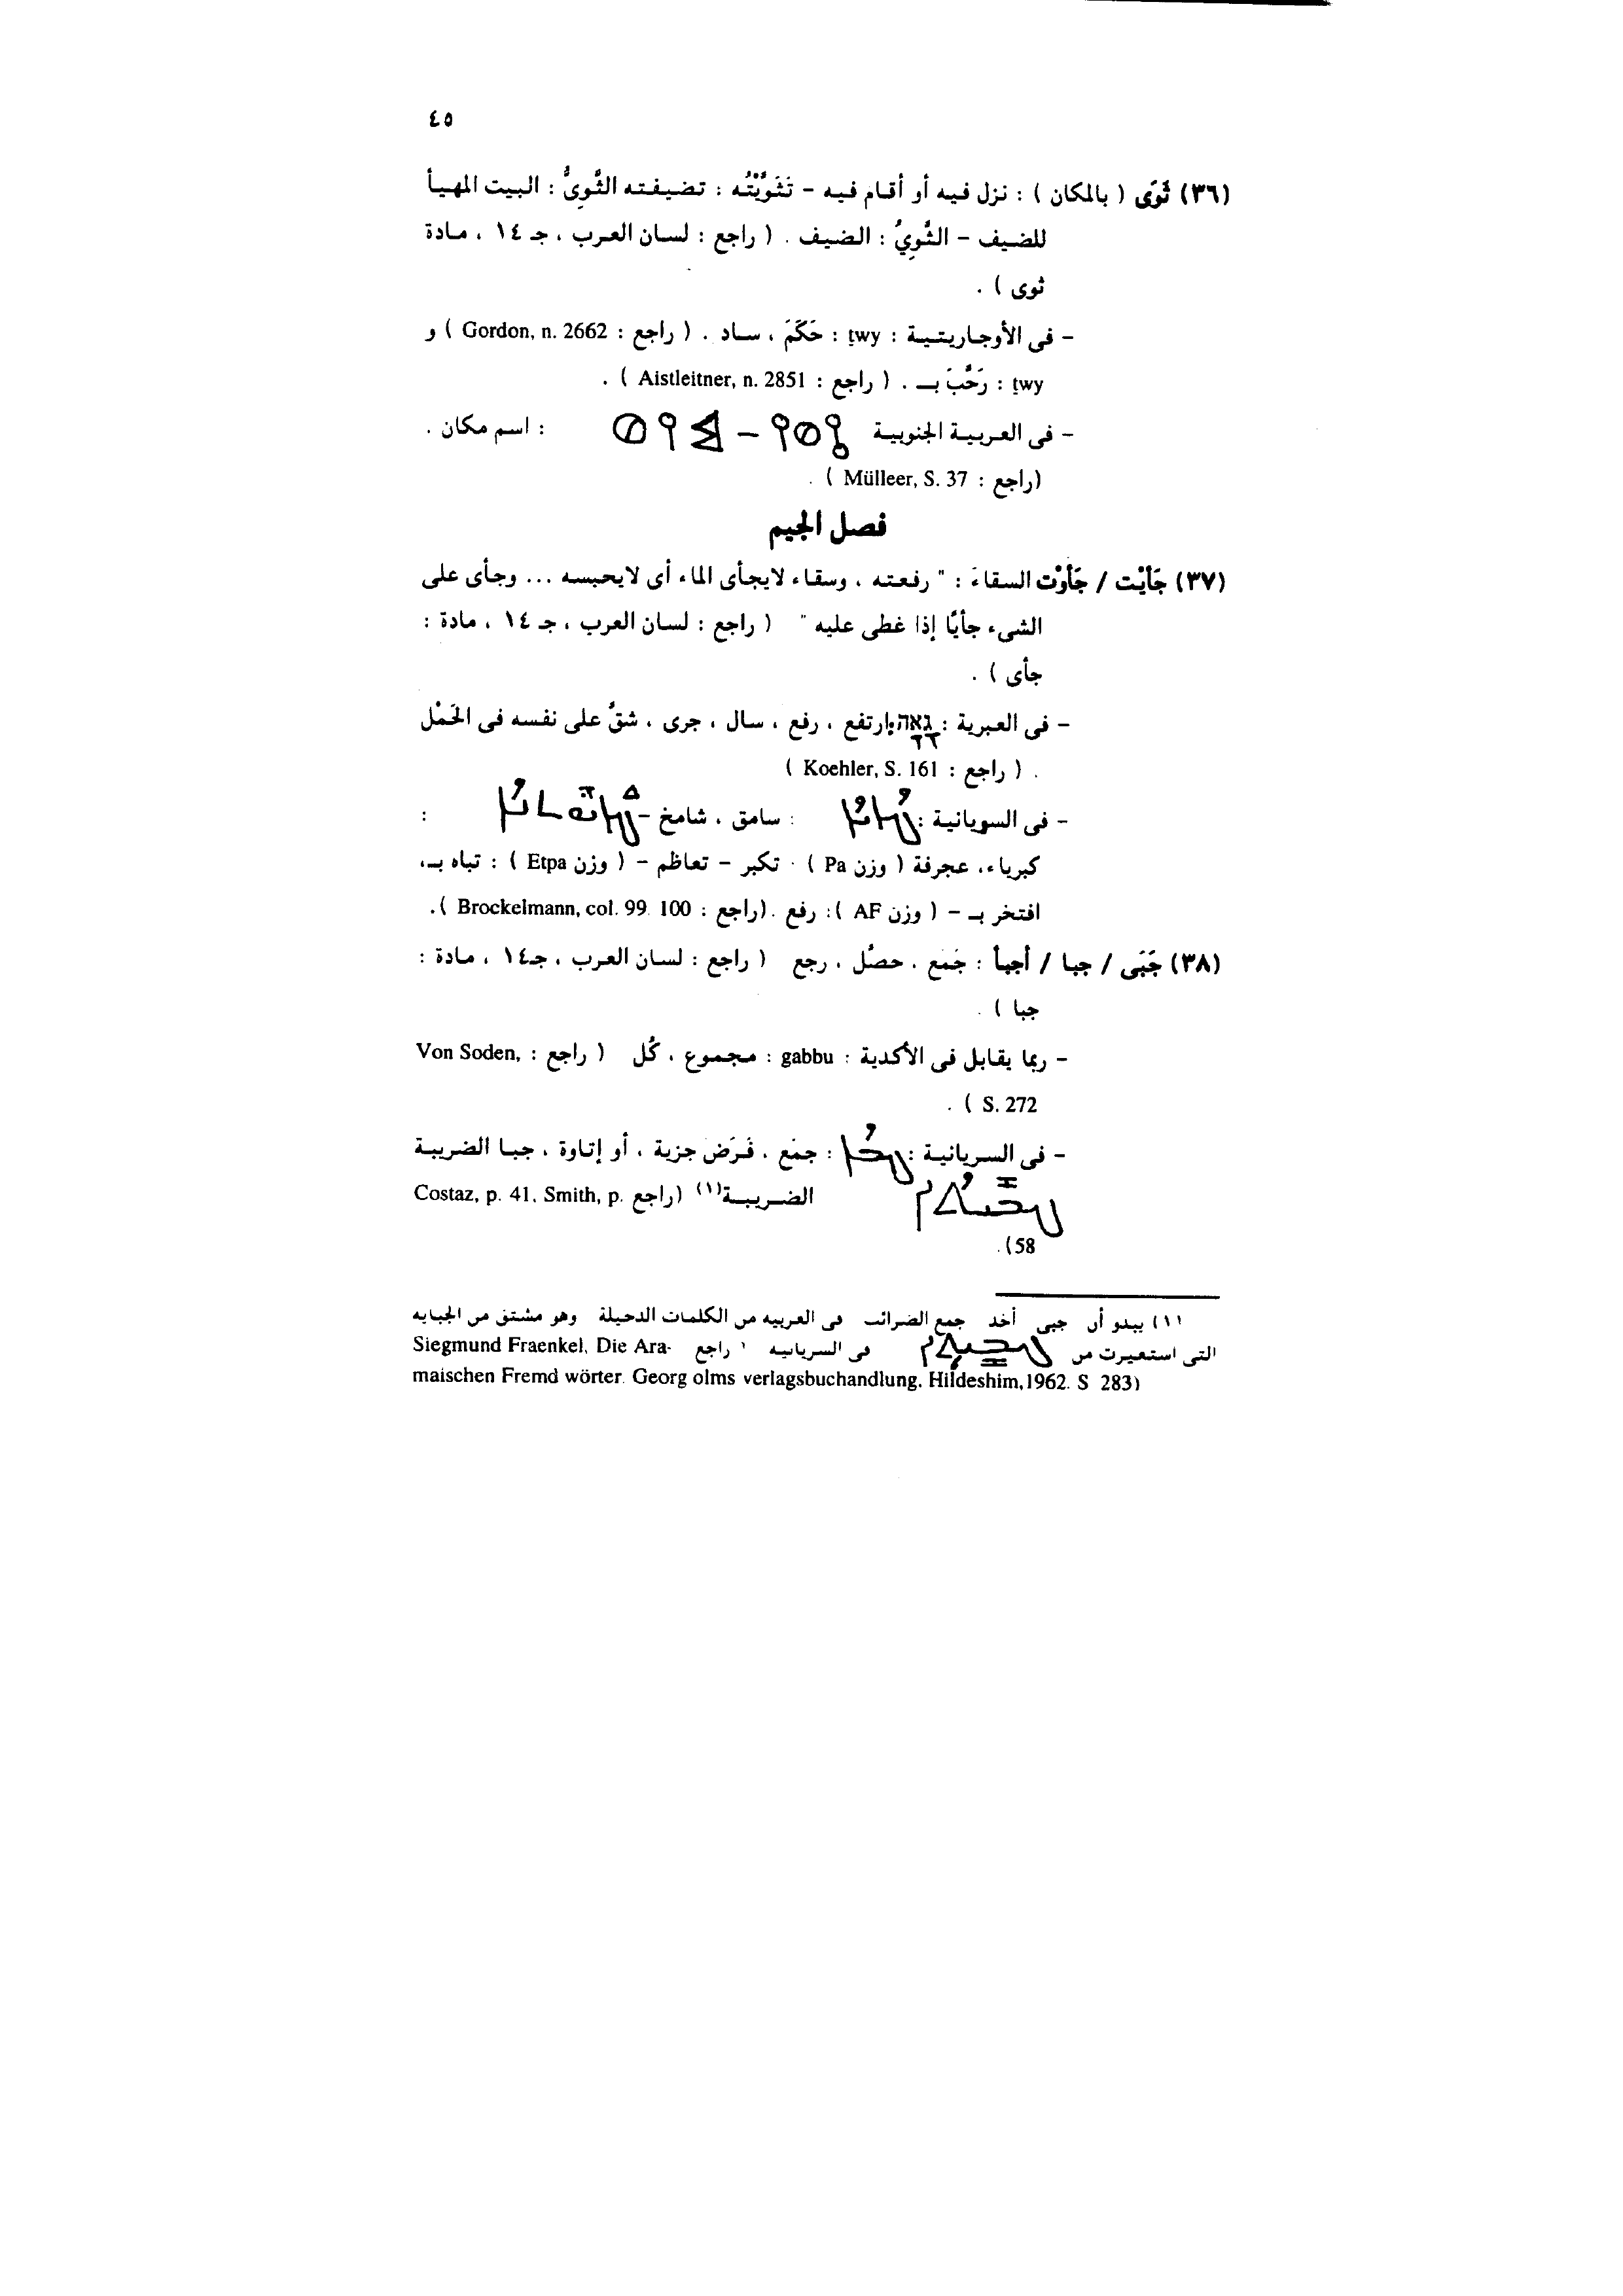 ٤٥
(٣٦) ثَوَى ( بالمكان ) : نزل فيه أو أقام فيه – تَثَوَّيْتُه : تضيفته الثَّوِىُّ : البيت المهيأ
للضيف – الثَّوِيُّ : الضيف . ( راجع : لسان العرب ، جـ ١٤ ، مادة
ثوى ) .
– فى الأوجاريتية : ṯwy : حَكَمَ ، ساد . ( راجع : Gordon, n. 2662 ) و
ṯwy : رَحَّبَ بـ . ( راجع : Aistleitner, n. 2851 ) .
– فى العربية الجنوبية : اسم مكان .
(راجع : Mülleer, S. 37 ) .
فصل الجيم
(٣٧) جَأَيْت / جَأَوْت السقاءَ : " رفعته ، وسقاء لايجأى الماء أى لايحبسه ... وجأى على
الشىء جأيًا إذا غطى عليه " ( راجع : لسان العرب ، جـ ١٤ ، مادة :
جأى ) .
– فى العبرية : גָּאָה : ارتفع ، رفع ، سال ، جرى ، شقَّ على نفسه فى الحَمْل
. ( راجع : Koehler, S. 161 )
– فى السويانية : : سامق ، شامخ – :
كبرياء، عجرفة ( وزن Pa ) . تكبر – تعاظم – ( وزن Etpa ) : تباه بـ،
افتخر بـ – ( وزن AF ): رفع .(راجع : Brockelmann, col. 99. 100 ).
(٣٨) جَبَى / جبا / أجبأ : جَمَع ، حصَّل ، رجع ( راجع : لسان العرب ، جـ١٤ ، مادة :
جبا ) .
– ربما يقابل فى الأكدية : gabbu : مجموع ، كُل ( راجع : Von Soden,
S. 272 ) .
– فى السريانية : : جمَع ، فَرَض جزية ، أو إتاوة ، جبا الضريبة
الضريبة(١) (راجع Costaz, p. 41. Smith, p.
58).
(١) يبدو أن جبى أخذ جمع الضرائب فى العربيه من الكلمات الدخيلة وهو مشتق من الجبايه
التى استعيرت من فى السريانيه ( راجع Siegmund Fraenkel, Die Ara-
maischen Fremd wörter. Georg olms verlagsbuchandlung, Hildeshim,1962. S 283)